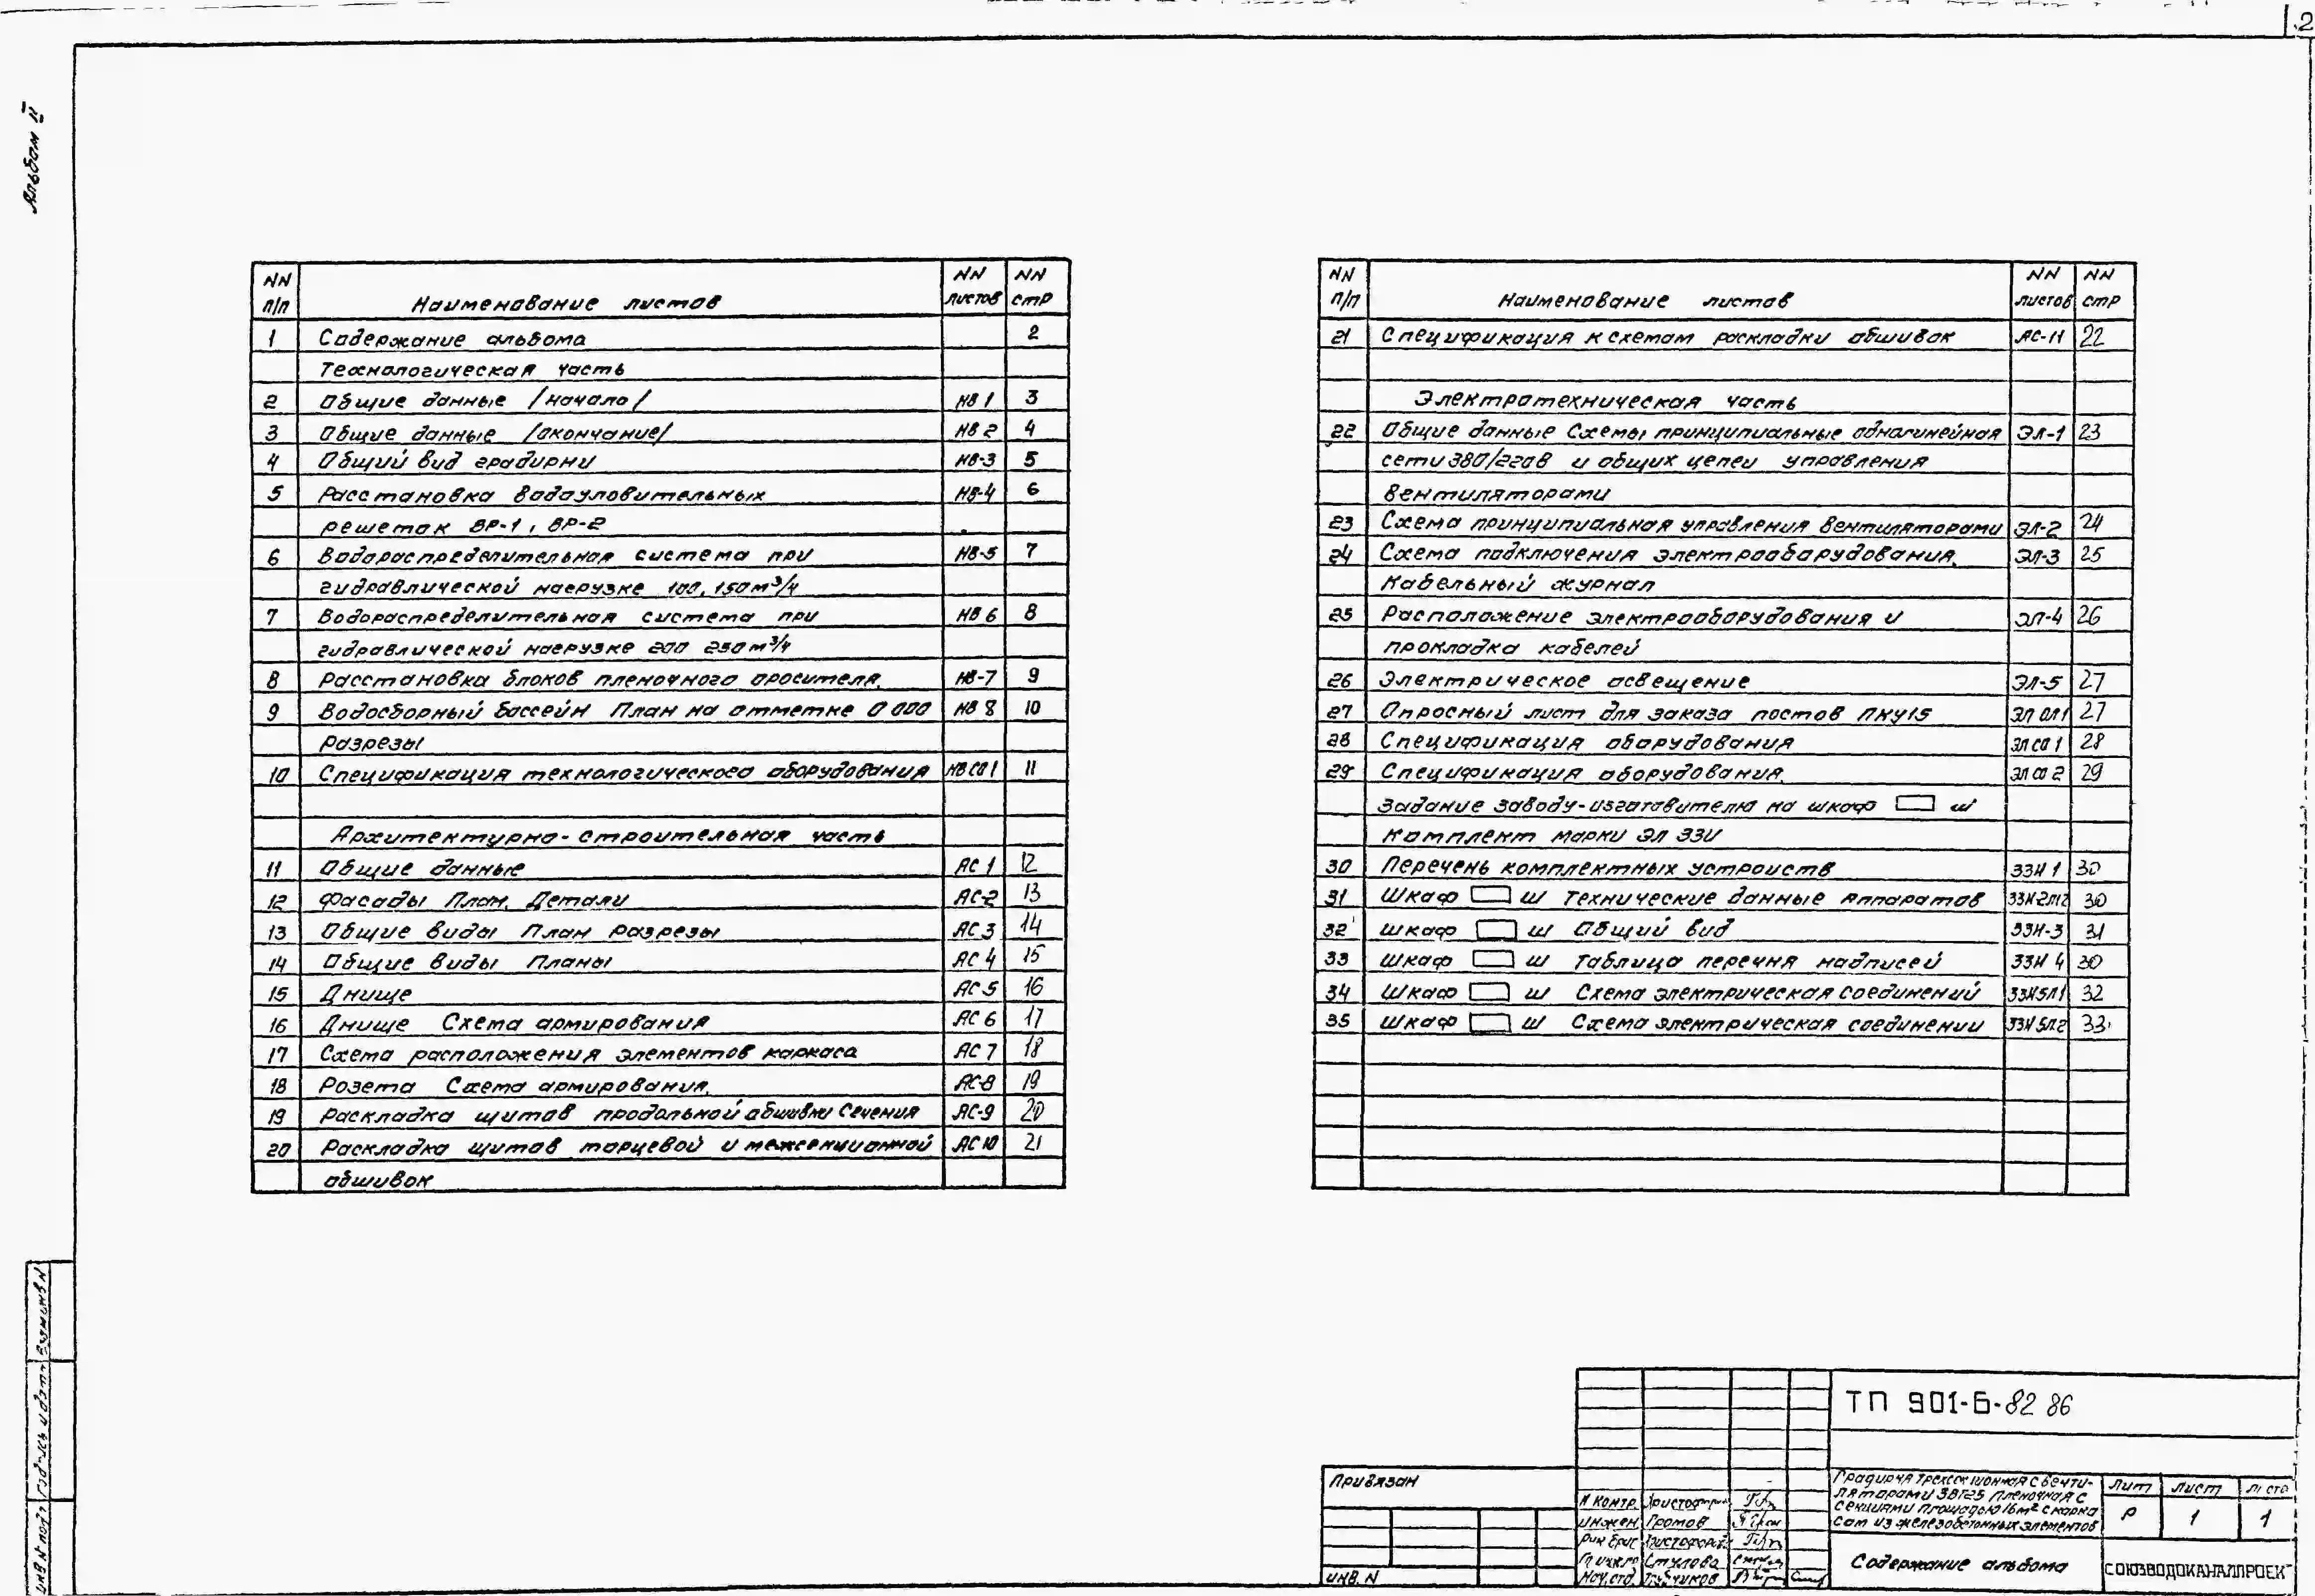 2
Альбом II
NN п/п Наименование листов NN листов NN стр
1 Содержание альбома 2
Технологическая часть
2 Общие данные /начало/ НВ 1 3
3 Общие данные /окончание/ НВ 2 4
4 Общий вид градирни НВ-3 5
5 Расстановка водоуловительных НВ-4 6
решеток ВР-1, ВР-2
6 Водораспределительная система при НВ-5 7
гидравлической нагрузке 100, 150 м³/ч
7 Водораспределительная система при НВ 6 8
гидравлической нагрузке 200 250 м³/ч
8 Расстановка блоков пленочного оросителя. НВ-7 9
9 Водосборный бассейн План на отметке 0 000 НВ 8 10
Разрезы
10 Спецификация технологического оборудования НВ СО 1 11
Архитектурно-строительная часть
11 Общие данные АС 1 12
12 Фасады План. Детали АС-2 13
13 Общие виды План разрезы АС 3 14
14 Общие виды Планы АС 4 15
15 Днище АС 5 16
16 Днище Схема армирования АС 6 17
17 Схема расположения элементов каркаса АС 7 18
18 Розета Схема армирования. АС-8 19
19 Раскладка щитов продольной обшивки Сечения АС-9 20
20 Раскладка щитов торцевой и межсекционной АС 10 21
обшивок
NN п/п Наименование листов NN листов NN стр
21 Спецификация к схемам раскладки обшивок АС-11 22
Электротехническая часть
22 Общие данные Схемы принципиальные однолинейная ЭЛ-1 23
сети 380/220В и общих цепей управления
вентиляторами
23 Схема принципиальная управления вентиляторами ЭЛ-2 24
24 Схема подключения электрооборудования. ЭЛ-3 25
Кабельный журнал
25 Расположение электрооборудования и ЭЛ-4 26
прокладка кабелей
26 Электрическое освещение ЭЛ-5 27
27 Опросный лист для заказа постов ПКУ15 ЭЛ ОЛ1 27
28 Спецификация оборудования ЭЛ СО 1 28
29 Спецификация оборудования. ЭЛ СО 2 29
Задание заводу-изготовителю на шкаф Ш
Комплект марки ЭЛ ЗЗИ
30 Перечень комплектных устройств ЗЗИ 1 30
31 Шкаф Ш Технические данные аппаратов ЗЗИ-2Л12 30
32 Шкаф Ш Общий вид ЗЗИ-3 31
33 Шкаф Ш Таблица перечня надписей ЗЗИ 4 30
34 Шкаф Ш Схема электрическая соединений ЗЗИ 5Л1 32
35 Шкаф Ш Схема электрическая соединений ЗЗИ 5Л.2 33
ТП 901-6-82 86
Привязан
Инв. N
Н контр.
Инжен. Громов
Стулова
Нач. отд.
Градирня трехсекционная с венти-
ляторами 3ВГ25 пленочная с
секциями площадью 16 м² с карка
сом из железобетонных элементов
Лит Лист Листо
Р 1 1
Содержание альбома
СОЮЗВОДОКАНАЛПРОЕКТ
Взам инв N
Подпись и дата
Инв N подл